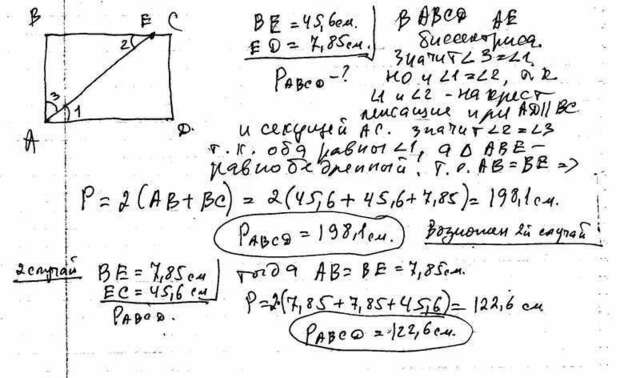 B E C
2
3
1
A D.
BE = 45,6 см.
ED = 7,85 см.
P ABCD - ?
В ABCD AE
биссектриса.
Значит ∠3 = ∠1.
но и ∠1 = ∠2, т.к
∠1 и ∠2 - накрест
лежащие при AD || BC
и секущей AC. значит ∠2 = ∠3
т.к. оба равны ∠1, а △ ABE -
равнобедренный. т.о. AB = BE =>
P = 2(AB + BC) = 2(45,6 + 45,6 + 7,85) = 198,1 см.
P ABCD = 198,1 см.
Возможен 2й случай
2 случай
BE = 7,85 см
EC = 45,6 см
P ABCD.
тогда AB = BE = 7,85 см.
P = 2(7,85 + 7,85 + 45,6) = 122,6 см
P ABCD = 122,6 см.